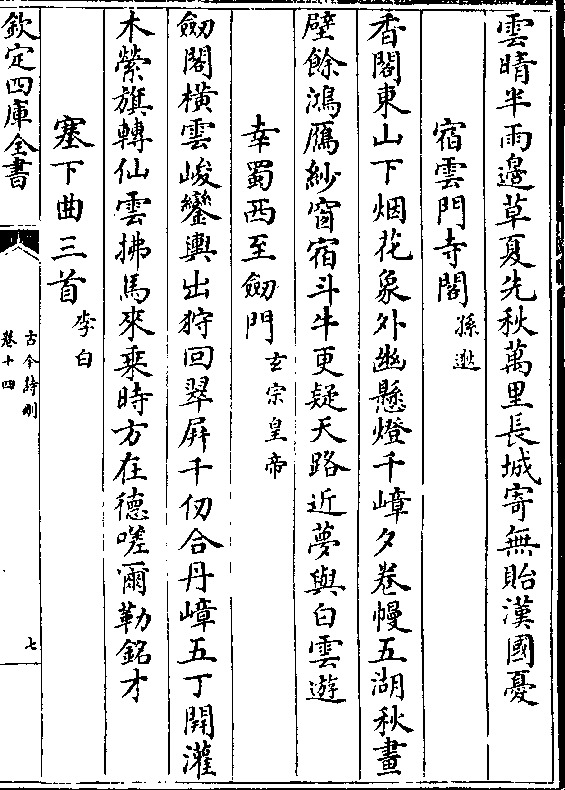 雲晴半雨邊草夏先秋萬里長城寄無貽漢國憂
宿雲門寺閣 孫逖
香閣東山下烟花象外幽懸燈千嶂夕卷幔五湖秋畫
壁餘鴻鴈紗窗宿斗牛更疑天路近夢與白雲遊
幸蜀西至劒門 玄宗皇帝
劒閣橫雲峻鑾輿出狩回翠屏千仞合丹嶂五丁開灌
木縈旗轉仙雲拂馬來乗時方在德嗟爾勒銘才
塞下曲三首 李白
欽定四庫全書
古今詩刪
卷十四
七